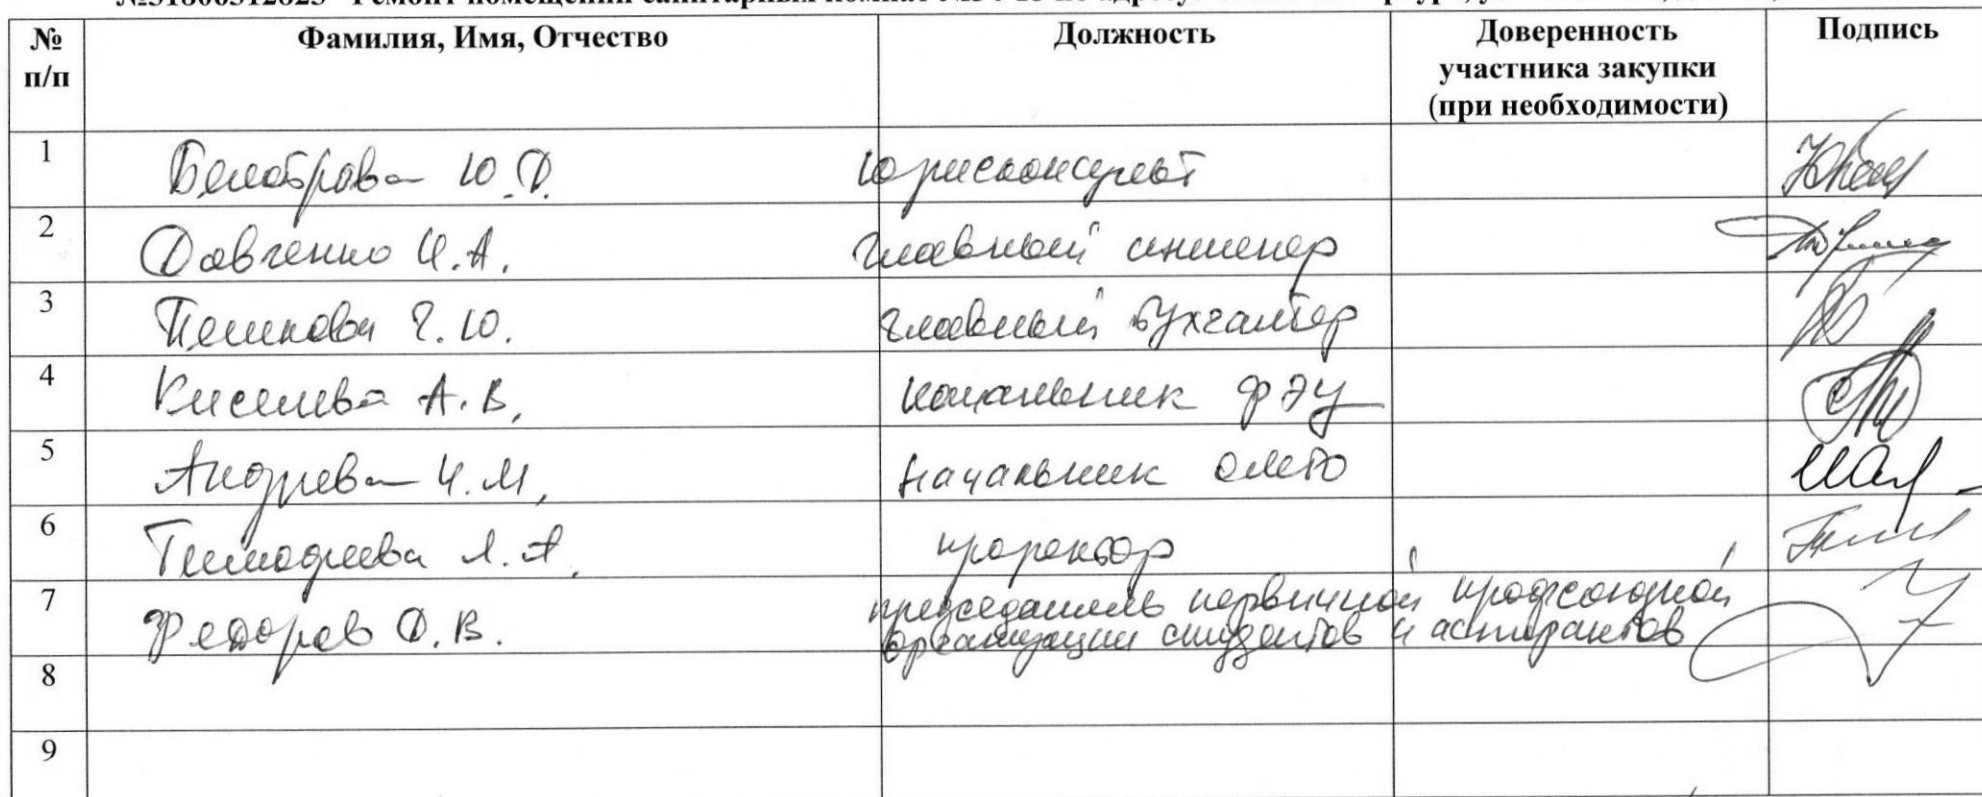 № п/п Фамилия, Имя, Отчество Должность Доверенность участника закупки (при необходимости) Подпись
1 Белоброва Ю.Д. юрисконсульт
2 Довченко И.А. главный инженер
3 Пешкова Г.Ю. главный бухгалтер
4 Киселева А.В. начальник ФЭУ
5 Андреева И.М. начальник ОМТО
6 Тимофеева Л.А. проректор
7 Федоров Д.В. председатель первичной профсоюзной
организации студентов и аспирантов
8
9